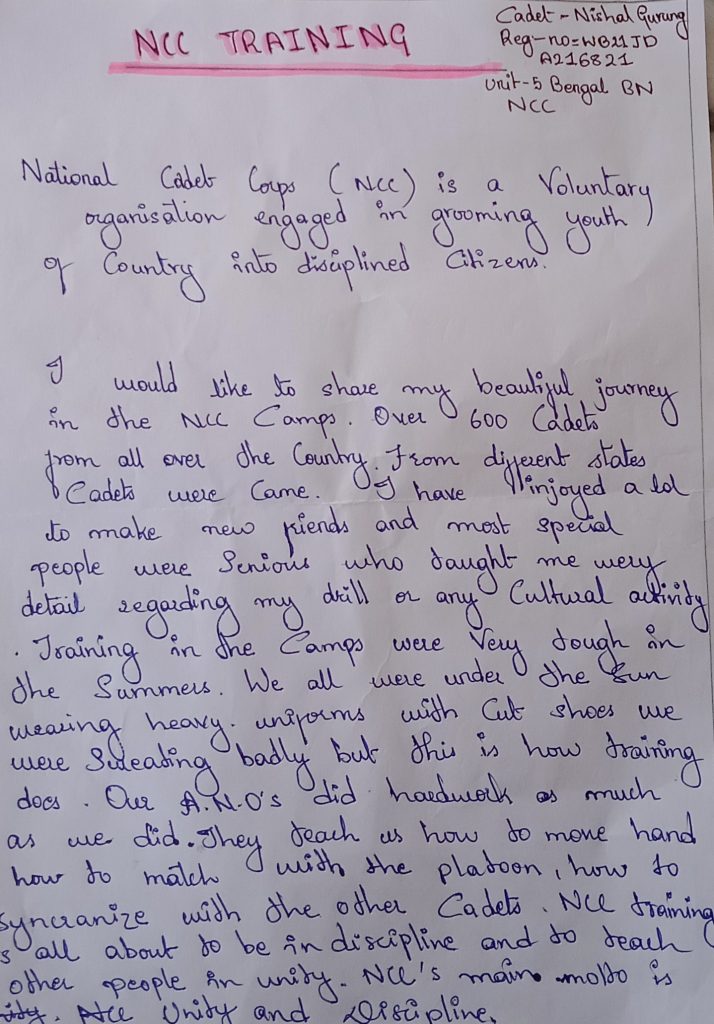 NCC TRAINING
Cadet - Nishal Gurung
Reg-no=WB21JD
A216821
Unit-5 Bengal BN
NCC
National Cadet Corps (NCC) is a Voluntary
organisation engaged in grooming youth
of Country into disciplined Citizens.
I would like to share my beautiful journey
in the NCC Camps. Over 600 Cadets
from all over the Country. From different states
Cadets were Came. I have injoyed a lot
to make new friends and most special
people were Senious who taught me wery
detail regarding my drill or any Cultural activity
. Training in the Camps were Very tough in
the Summers. We all were under the Sun
wearing heavy. uniforms with Cut shoes we
were Sweating badly but this is how training
does. Our A.N.O's did hardwork as much
as we did. They teach us how to move hand
how to match with the platoon, how to
syncranize with the other Cadets. NCC training
s all about to be in discipline and to teach
other people in unity. NCC's main motto is
Unity and Discipline.